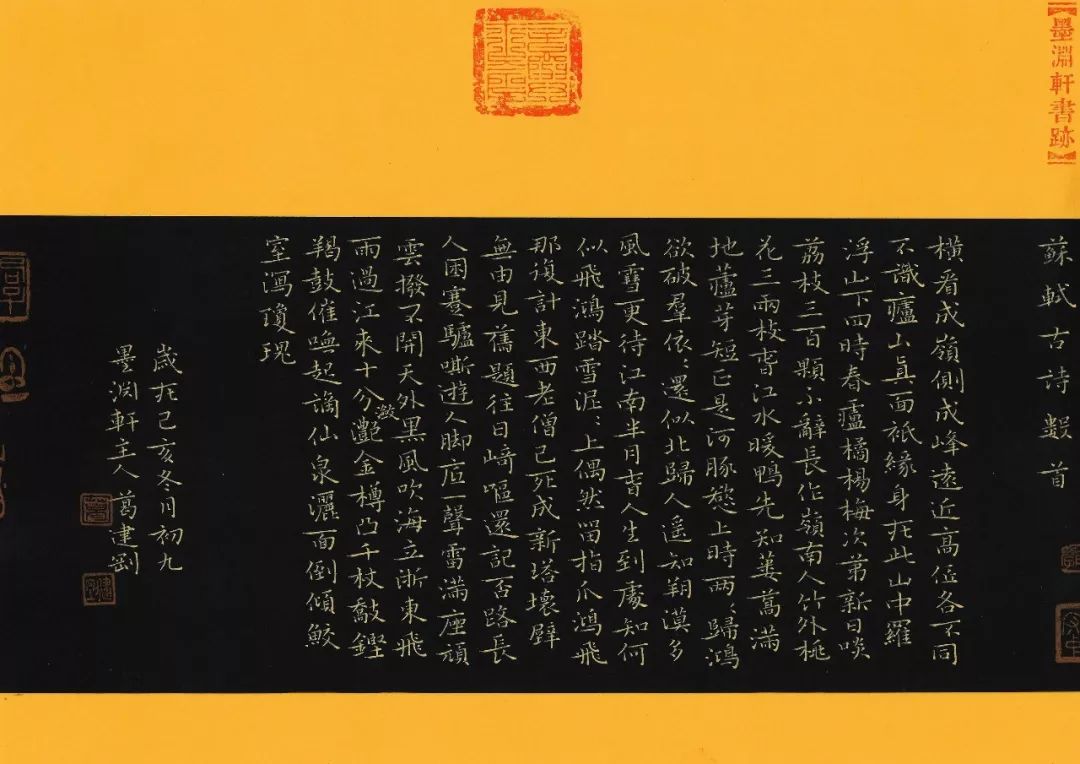 【墨淵軒書跡】
蘇軾古詩數首
橫看成嶺側成峰遠近高低各不同
不識廬山眞面祇緣身在此山中羅
浮山下四時春廬橘楊梅次第新日啖
荔枝三百顆不辭長作嶺南人竹外桃
花三兩枝春江水暖鴨先知蔞蒿滿
地蘆芽短正是河豚欲上時兩〻歸鴻
欲破羣依〻還似北歸人遥知朔漠多
風雪更待江南半月春人生到處知何
似飛鴻踏雪泥〻上偶然留指爪鴻飛
那復計東西老僧已死成新塔壞壁
無由見舊題往日崎嶇還記否路長
人困蹇驢嘶遊人脚底一聲雷滿座頑
雲撥不開天外黑風吹海立浙東飛
雨過江來十分瀲灩金樽凸千杖敲鏗
羯鼓催喚起謫仙泉灑面倒傾鮫
室瀉瓊瑰
歲在己亥冬月初九
墨淵軒主人葛建剛